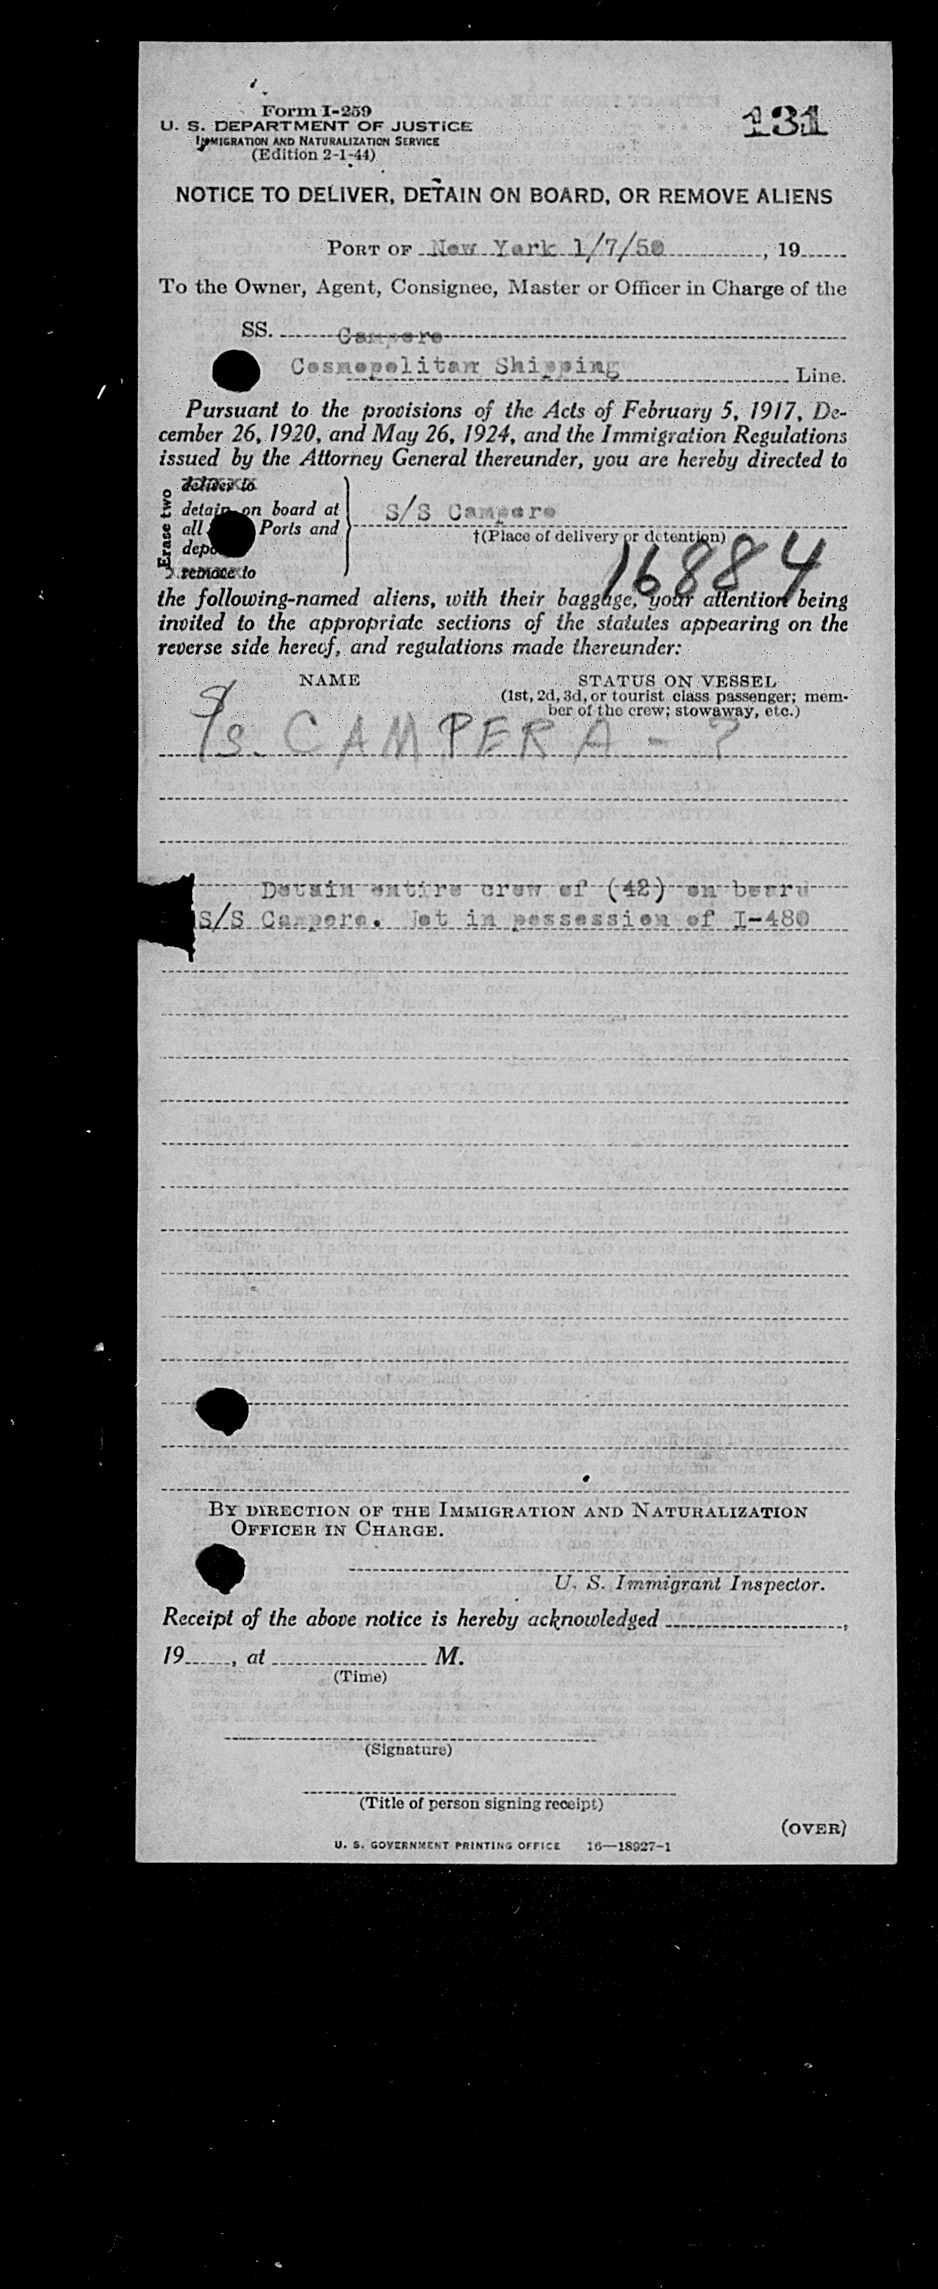 Form I-259
131
U. S. DEPARTMENT OF JUSTICE
IMMIGRATION AND NATURALIZATION SERVICE
(Edition 2-1-44)
NOTICE TO DELIVER, DETAIN ON BOARD, OR REMOVE ALIENS
PORT OF New York 1/7/50, 19
To the Owner, Agent, Consignee, Master or Officer in Charge of the
SS. Campero
Cosmopolitan Shipping Line.
Pursuant to the provisions of the Acts of February 5, 1917, De-
cember 26, 1920, and May 26, 1924, and the Immigration Regulations
issued by the Attorney General thereunder, you are hereby directed to
Erase two
deliver to
detain on board at
all Ports and
remove to
S/S Campero
†(Place of delivery or detention)
16884
the following-named aliens, with their baggage, your attention being
invited to the appropriate sections of the statutes appearing on the
reverse side hereof, and regulations made thereunder:
NAME
STATUS ON VESSEL
(1st, 2d, 3d, or tourist class passenger; mem-
ber of the crew; stowaway, etc.)
S/s. CAMPERA - ?
Detain entire crew of (42) on board
S/S Campero. Not in possession of I-480
BY DIRECTION OF THE IMMIGRATION AND NATURALIZATION
OFFICER IN CHARGE.
U. S. Immigrant Inspector.
Receipt of the above notice is hereby acknowledged ,
19 , at M.
(Time)
(Signature)
(Title of person signing receipt)
(OVER)
U. S. GOVERNMENT PRINTING OFFICE 16—18927-1